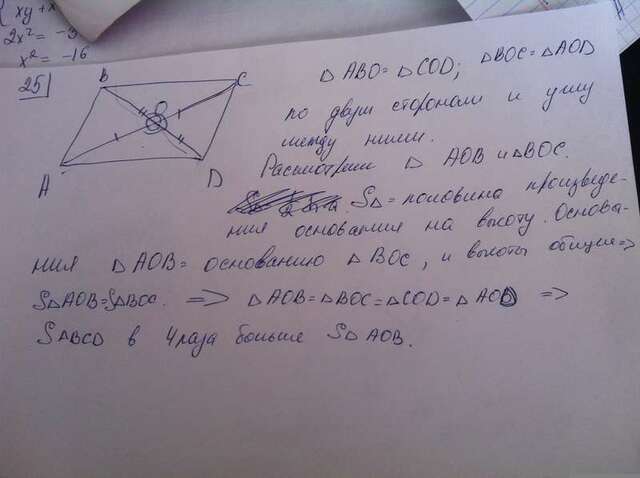 xy + x
2x² = -3
x² = -16
25
B
C
O
A
D
△ABO = △COD; △BOC = △AOD
по двум сторонам и углу
между ними.
Рассмотрим △ AOB и △BOC.
S△ = половина произведе-
ния основания на высоту. Основа-
ния △AOB = основанию △BOC, и высоты общие =>
S△AOB = S△BOC. => △AOB = △BOC = △COD = △AOD =>
S△BCD в 4 раза больше S△AOB.